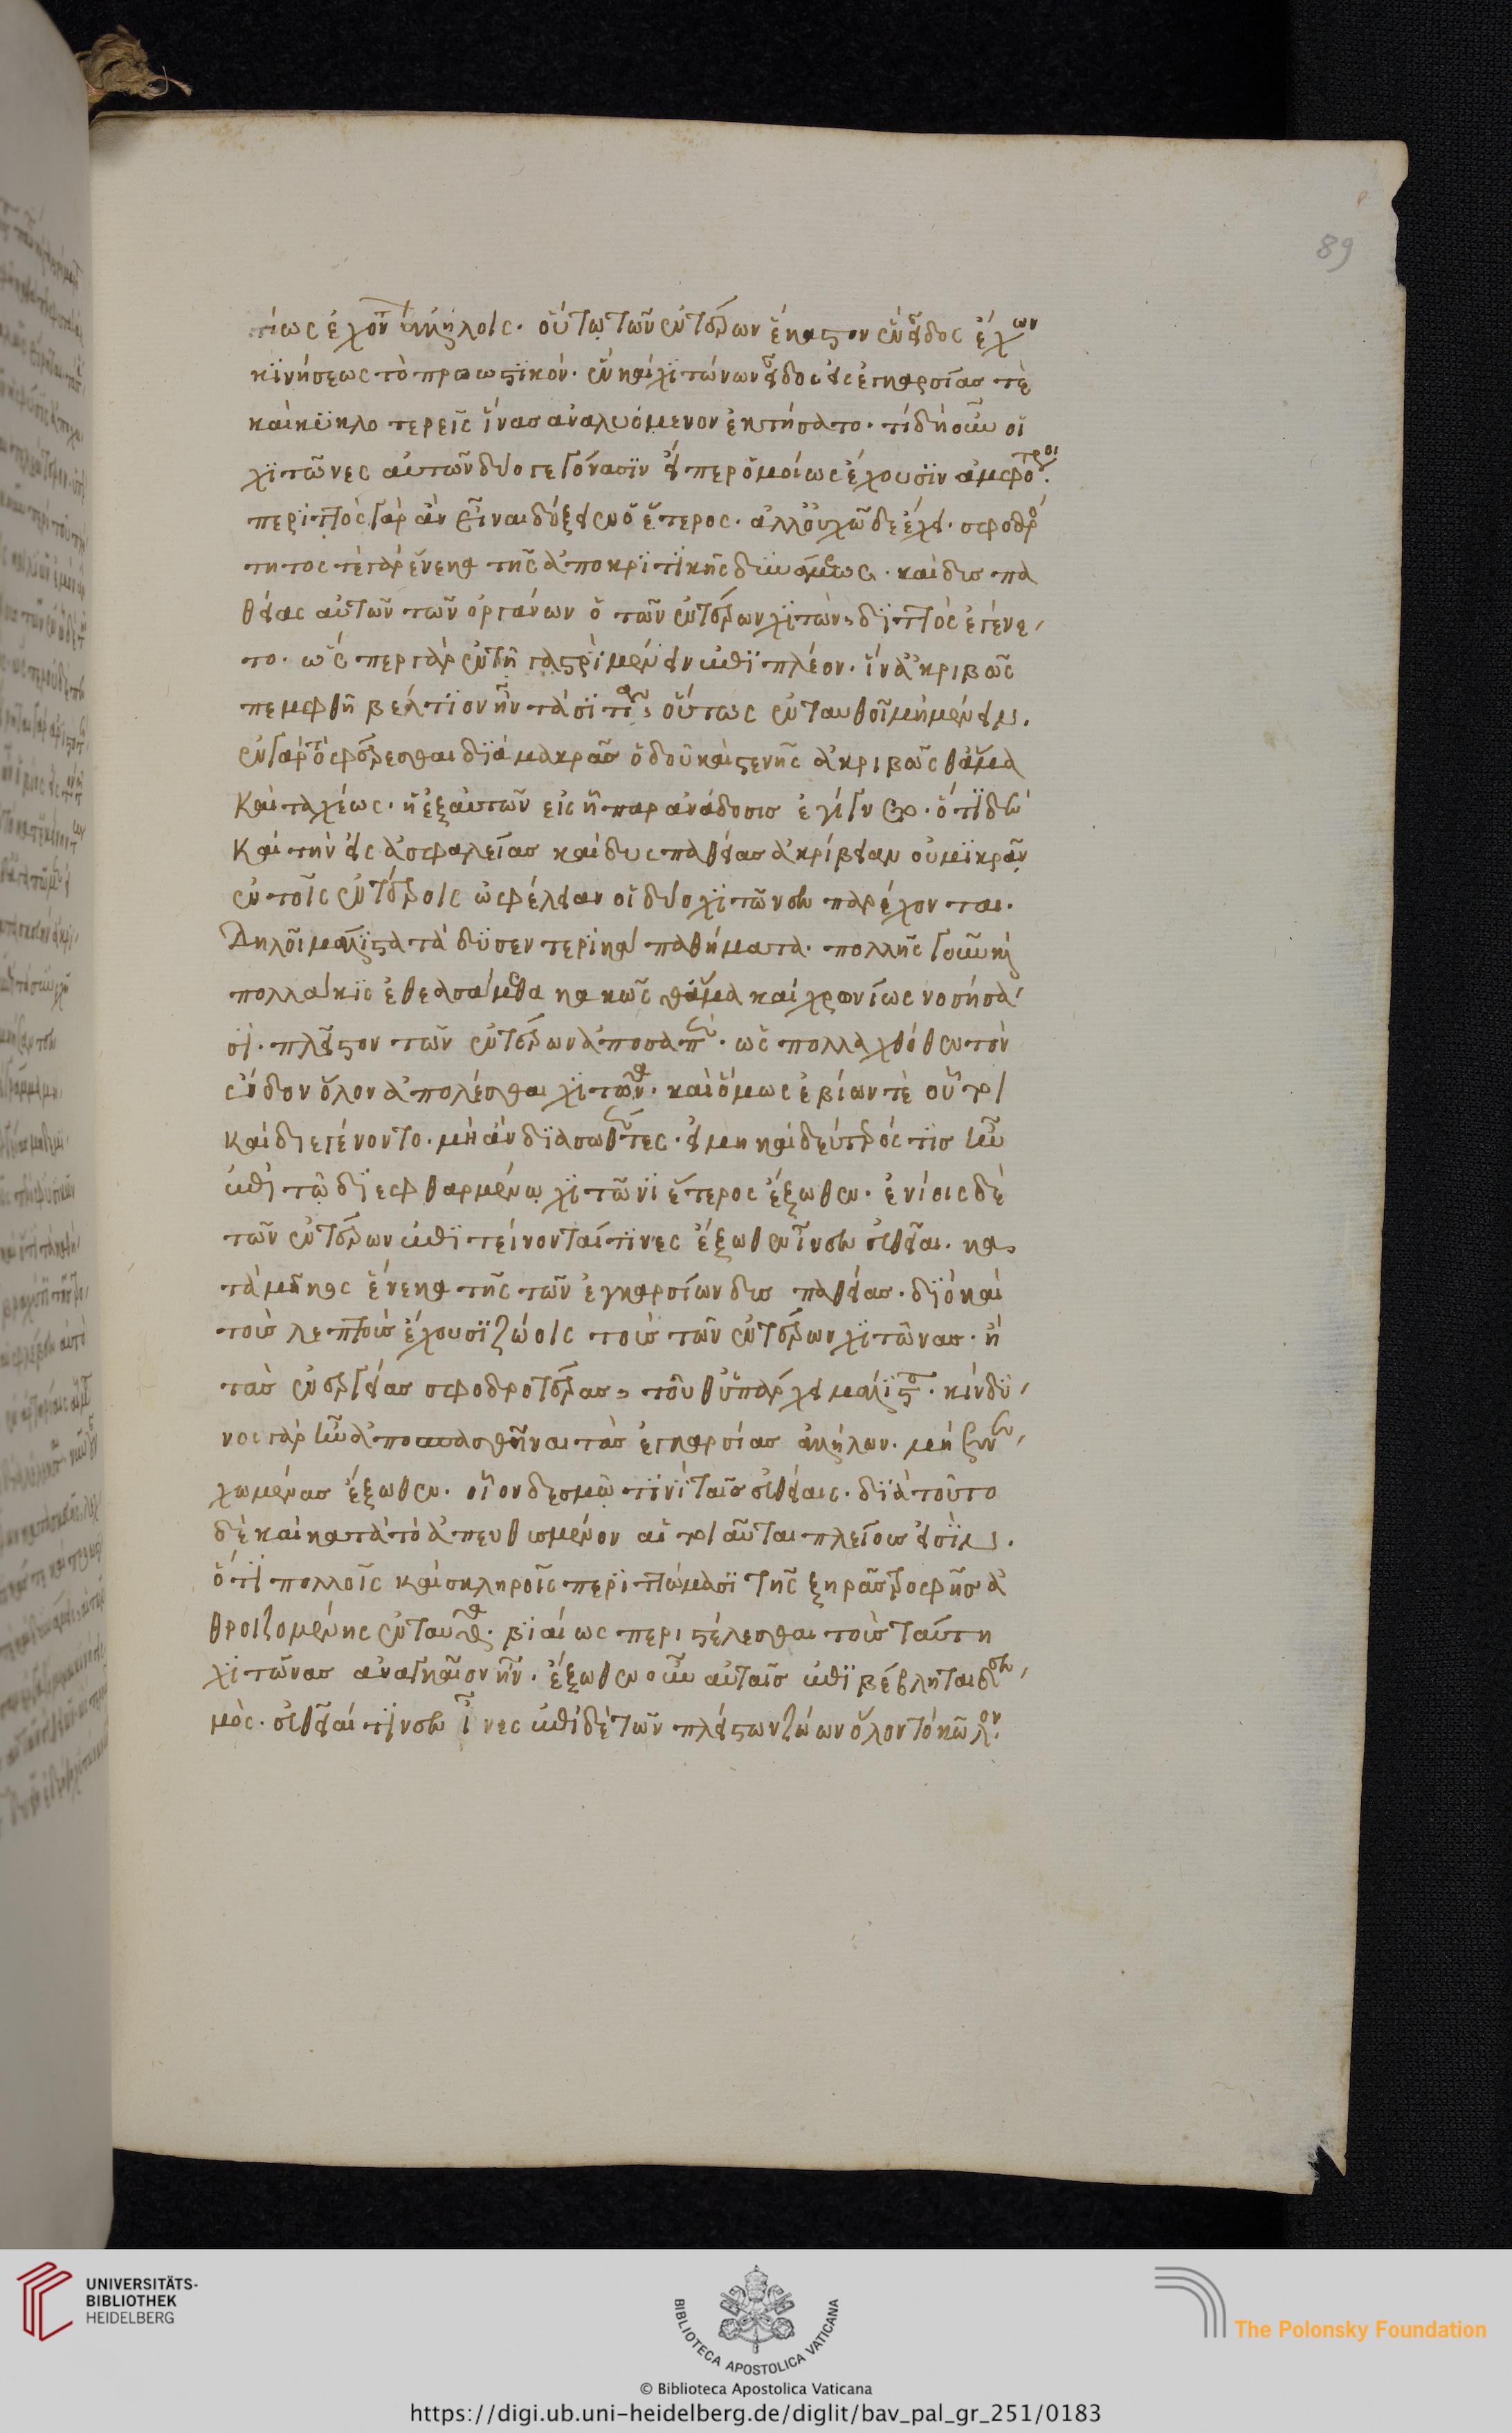 89
τίως ἔχον ἀλλήλοις· οὕτω τῶν ἐντέρων ἕκαστον ἓν εἶδος ἔχων
κινήσεως τὸ προωστικόν· ἓν καὶ χιτώνων εἶδος εἰς ἐγκαρσίας τὲ
καὶ κυκλοτερεῖς ἵνας ἀναλυόμενον ἐκτήσατο· τί δήουν οἱ
χιτῶνες αὐτῶν δύο γεγόνασιν εἴπερ ὁμοίως ἔχουσιν ἀμφότεροι·
περιττὸς γὰρ ἂν εἶναι δόξειεν ὁ ἕτερος· ἀλλ' οὐχ ὧδε ἔχει· σφοδρό
τητος τὲ γὰρ ἕνεκα τῆς ἀποκριτικῆς δυνάμεως· καὶ δυσπα
θείας αὐτῶν τῶν ὀργάνων ὁ τῶν ἐντέρων χιτὼν διττὸς ἐγένε
το· ὥσπερ γὰρ ἐν τῇ γαστρὶ μένειν ἐπὶ πλέον· ἵν' ἀκριβῶς
πεμφθῆ βέλτιον ἦν τὰ σιτία, οὕτως ἐνταυθοῖ μὴ μένειν·
ἐν γὰρ τὸ φέρεσθαι διὰ μακρᾶς ὁδοῦ καὶ στενῆς ἀκριβῶς θ' ἅμα
καὶ ταχέως· ἡ ἐξ αὐτῶν εἰς ἧπαρ ἀνάδοσις ἐγίγνετο· ὅτι δὲ
καὶ τὴν εἰς ἀσφαλείας καὶ δυσπαθείας ἀκρίβειαν οὐ μικρὰν
ἐν τοῖς ἐντέροις ὠφέλειαν οἱ δύο χιτῶνες παρέχονται·
Δηλοῖ μάλιστα τὰ δυσεντερικὰ παθήματα· πολλῆς γοῦν καὶ
πολλάκις ἐθεασάμεθα κακῶς θ' ἅμα καὶ χρονίως νοσήσα
σι· πλεῖστον τῶν ἐντέρων ἀποσαπὲν· ὡς πολλαχόθεν τὸν
ἔνδον ὅλον ἀπολέσθαι χιτῶνα· καὶ ὅμως ἐβίων τὲ οὗτοι
καὶ διεγένοντο· μὴ ἂν διασωθέντες· εἰ μὴ καὶ δεύτερός τις ἦν
ἐπὶ τῷ διεφθαρμένῳ χιτῶνι ἕτερος ἔξωθεν· ἐνίοις δὲ
τῶν ἐντέρων ἐπιτείνονταί τινες ἔξωθεν ἶνες εὐθεῖαι· κα
τὰ μῆκος ἕνεκα τῆς τῶν ἐγκαρσίων δυσπαθείας· διὸ καὶ
τοῖς λεπτοὺς ἔχουσι ζώοις τοὺς τῶν ἐντέρων χιτῶνας· ἢ
τὰς ἐνεργείας σφοδροτέρας, τοῦθ' ὑπάρχει μάλιστα· κίνδυ
νος γὰρ ἦν ἀποσπασθῆναι τὰς ἐγκαρσίας ἀλλήλων· μὴ συνε
χωμένας ἔξωθεν· οἷον δεσμῷ τινὶ ταῖς εὐθείαις· διὰ τοῦτο
δὲ καὶ κατὰ τὸ ἀπευθυσμένον αἱ τοιαῦται πλείους εἰσὶν·
ὅτι πολλοῖς καὶ σκληροῖς περιττώμασι τῆς ξηρᾶς τροφῆς ἀ
θροιζομένης ἐνταῦθα· βιαίως περιστέλεσθαι τοὺς ταύτη
χιτῶνας ἀναγκαῖον ἦν· ἔξωθεν οὖν αὐταῖς ἐπιβέβληται δεσ
μὸς· εὐθεῖαί τινες ἶνες ἐπὶ δὲ τῶν πλείστων ζώων ὅλον τὸ κῶλον·
UNIVERSITÄTS-
BIBLIOTHEK
HEIDELBERG
BIBLIOTECA APOSTOLICA VATICANA
The Polonsky Foundation
© Biblioteca Apostolica Vaticana
https://digi.ub.uni-heidelberg.de/diglit/bav_pal_gr_251/0183